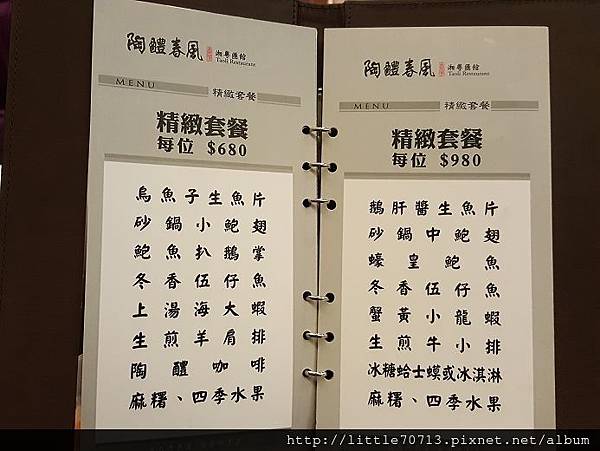 陶醴春風 湘粵匯館
Taoli Restaurant
MENU
精緻套餐
精緻套餐
每位 $680
烏魚子生魚片
砂鍋小鮑翅
鮑魚扒鵝掌
冬香伍仔魚
上湯海大蝦
生煎羊肩排
陶醴咖啡
麻糬、四季水果
陶醴春風 湘粵匯館
Taoli Restaurant
MENU
精緻套餐
精緻套餐
每位 $980
鵝肝醬生魚片
砂鍋中鮑翅
蠔皇鮑魚
冬香伍仔魚
蟹黃小龍蝦
生煎牛小排
冰糖蛤士蟆或冰淇淋
麻糬、四季水果
http://little70713.pixnet.net/album